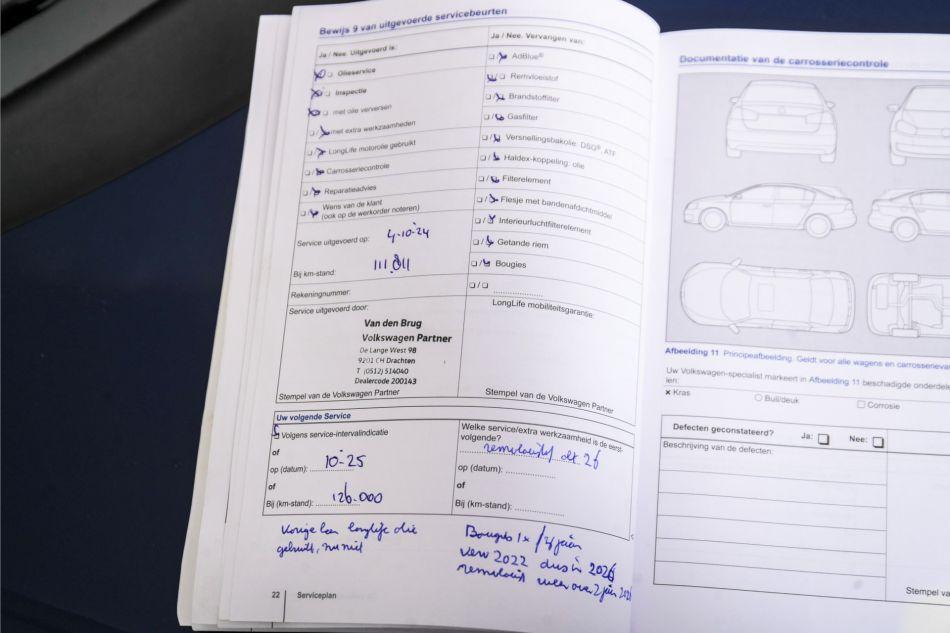 Bewijs 9 van uitgevoerde servicebeurten
Ja / Nee. Uitgevoerd is:
Olieservice
Inspectie
met olie verversen
met extra werkzaamheden
LongLife motorolie gebruikt
Carrosseriecontrole
Reparatieadvies
Wens van de klant
(ook op de werkorder noteren)
Service uitgevoerd op: 4-10-24
Bij km-stand: 111.811
Rekeningnummer:
Service uitgevoerd door:
Van den Brug
Volkswagen Partner
De Lange West 98
9201 CH Drachten
T (0512) 514040
Dealercode 200143
Stempel van de Volkswagen Partner
Ja / Nee. Vervangen van:
AdBlue®
Remvloeistof
Brandstoffilter
Gasfilter
Versnellingsbakolie: DSG®, ATF
Haldex-koppeling: olie
Filterelement
Flesje met bandenafdichtmiddel
Interieurluchtfilterelement
Getande riem
Bougies
LongLife mobiliteitsgarantie:
Stempel van de Volkswagen Partner
Uw volgende Service
Volgens service-intervalindicatie
of
op (datum): 10-25
of
Bij (km-stand): 126.000
Welke service/extra werkzaamheid is de eerst-
volgende?
remvloeistof okt 26
op (datum):
of
Bij (km-stand):
Vorige keer longlife olie
gebruikt, nu niet
Bougies 1x / 4 jaar
verv 2022 dus in 2026
remvloeist weer over 2 jaar 2026
22 Serviceplan
Documentatie van de carrosseriecontrole
Afbeelding 11 Principeafbeelding. Geldt voor alle wagens en carrosserievar
Uw Volkswagen-specialist markeert in Afbeelding 11 beschadigde onderdele
len:
x Kras
Buil/deuk
Corrosie
Defecten geconstateerd? Ja: Nee:
Beschrijving van de defecten:
Stempel va